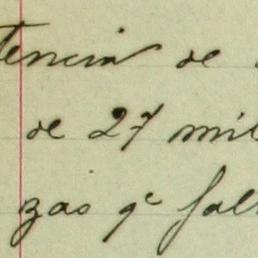 tencia de
de 27 mil
zas qe fal